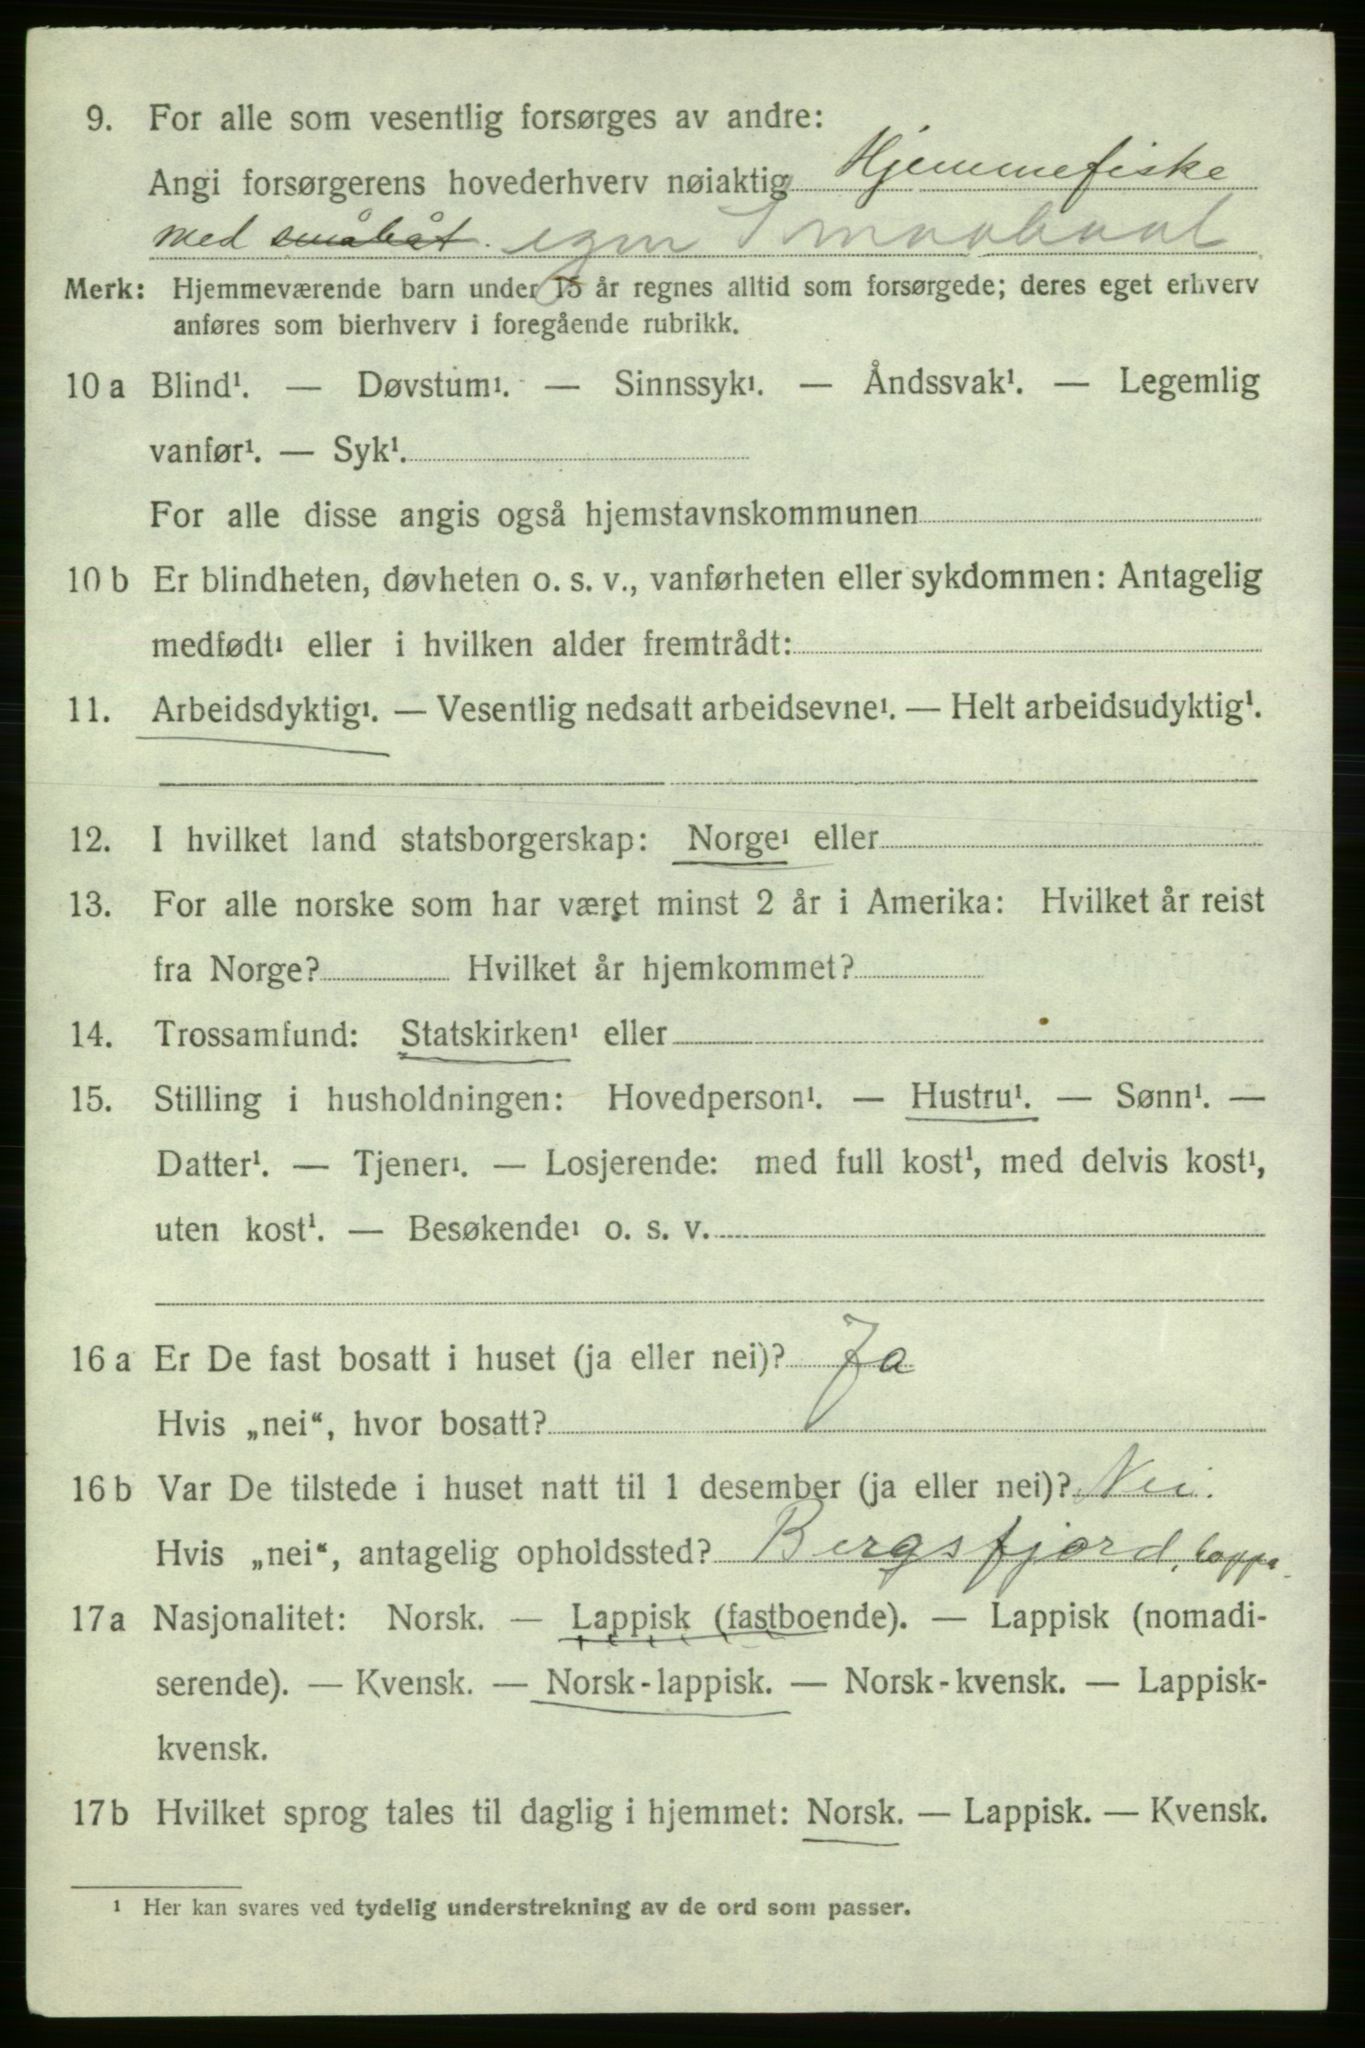 9. For alle som vesentlig forsørges av andre:
Angi forsørgerens hovederhverv nøiaktig Hjemmefiske
med småbåt. egen Smaabaat
Merk: Hjemmeværende barn under 15 år regnes alltid som forsørgede; deres eget erhverv
anføres som bierhverv i foregående rubrikk.
10 a Blind¹. — Døvstum¹. — Sinnssyk¹. — Åndssvak¹. — Legemlig
vanfør¹. — Syk¹.
For alle disse angis også hjemstavnskommunen
10 b Er blindheten, døvheten o. s. v., vanførheten eller sykdommen: Antagelig
medfødt¹ eller i hvilken alder fremtrådt:
11. Arbeidsdyktig¹. — Vesentlig nedsatt arbeidsevne¹. — Helt arbeidsudyktig¹.
12. I hvilket land statsborgerskap: Norge¹ eller
13. For alle norske som har været minst 2 år i Amerika: Hvilket år reist
fra Norge? Hvilket år hjemkommet?
14. Trossamfund: Statskirken¹ eller
15. Stilling i husholdningen: Hovedperson¹. — Hustru¹. — Sønn¹. —
Datter¹. — Tjener¹. — Losjerende: med full kost¹, med delvis kost¹,
uten kost¹. — Besøkende¹ o. s. v.
16 a Er De fast bosatt i huset (ja eller nei)? Ja
Hvis „nei“, hvor bosatt?
16 b Var De tilstede i huset natt til 1 desember (ja eller nei)? Nei.
Hvis „nei“, antagelig opholdssted? Bergsfjord, Loppa.
17 a Nasjonalitet: Norsk. — Lappisk (fastboende). — Lappisk (nomadi-
serende). — Kvensk. — Norsk-lappisk. — Norsk-kvensk. — Lappisk-
kvensk.
17 b Hvilket sprog tales til daglig i hjemmet: Norsk. — Lappisk. — Kvensk.
¹ Her kan svares ved tydelig understrekning av de ord som passer.